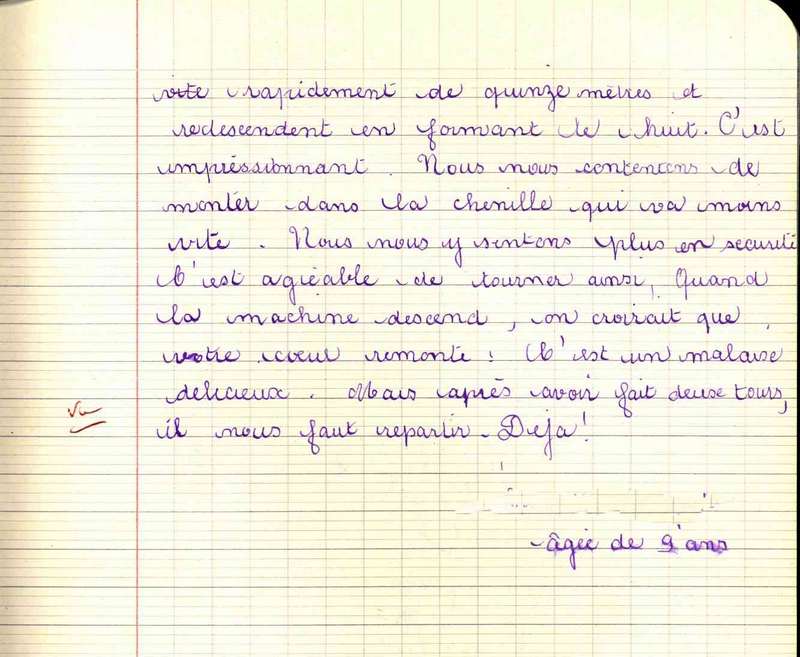 vite rapidement de quinze mètres et
redescendent en formant le huit. C'est
impréssionnant. Nous nous contentons de
monter dans la chenille qui va moins
vite. Nous nous y sentons plus en securité
C'est agréable de tourner ainsi, Quand
la machine descend, on croirait que
votre coeur remonte : C'est un malaise
delicieux. Mais après avoir fait deux tours,
il nous faut repartir. Deja !
Vu
âgée de 9 ans